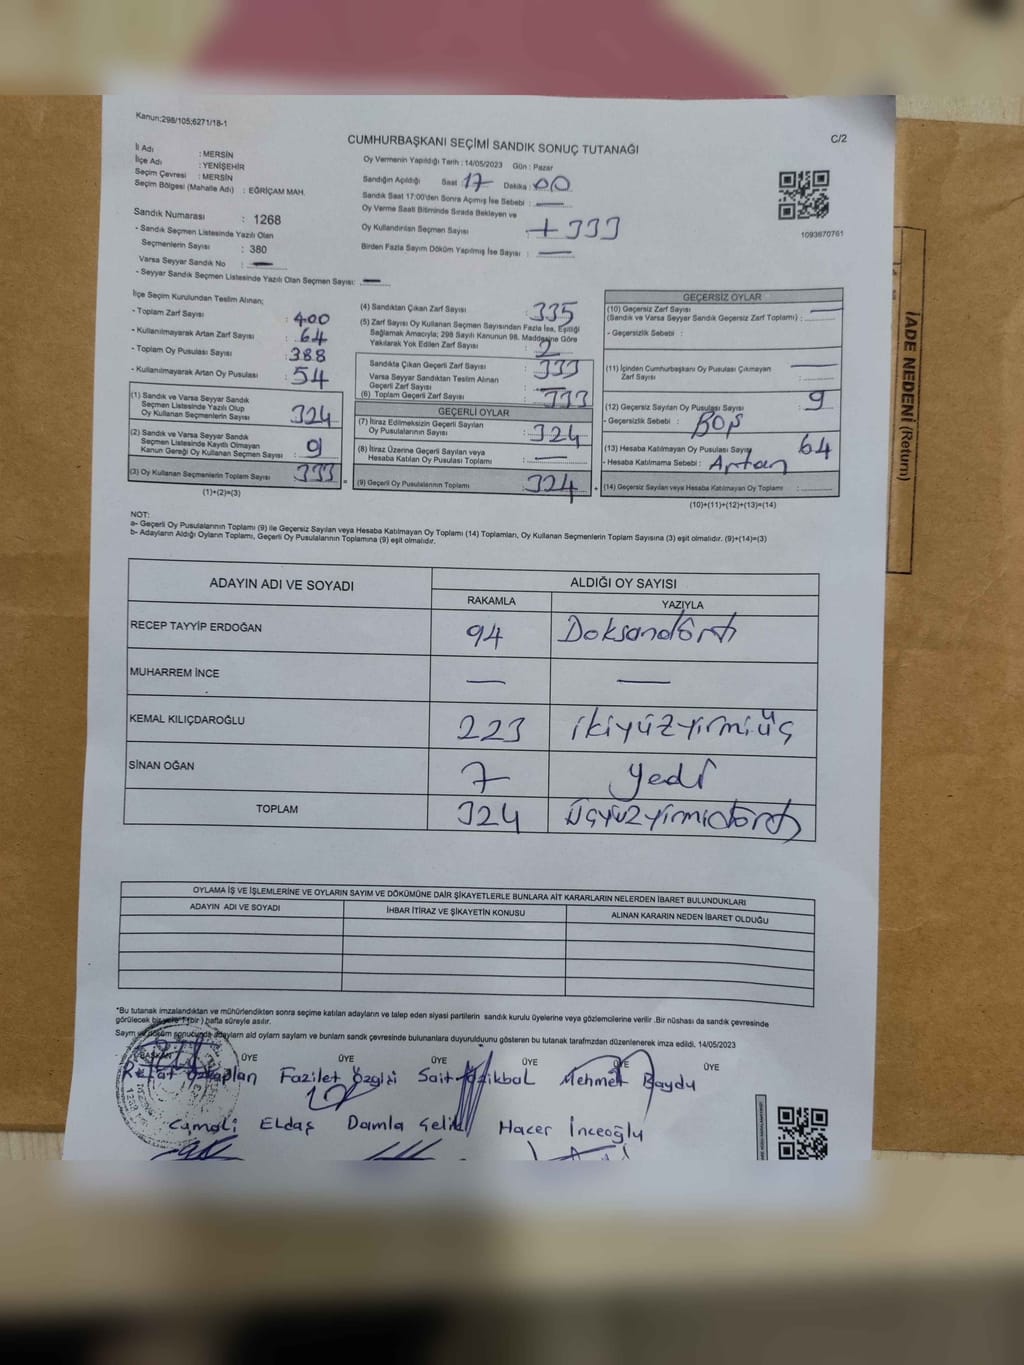 Kanun;298/105;6271/18-1
C/2
CUMHURBAŞKANI SEÇİMİ SANDIK SONUÇ TUTANAĞI
İl Adı : MERSİN
İlçe Adı : YENİŞEHİR
Seçim Çevresi : MERSİN
Seçim Bölgesi (Mahalle Adı) : EĞRİÇAM MAH.
Sandık Numarası : 1268
- Sandık Seçmen Listesinde Yazılı Olan
Seçmenlerin Sayısı : 380
Varsa Seyyar Sandık No : —
- Seyyar Sandık Seçmen Listesinde Yazılı Olan Seçmen Sayısı: —
Oy Vermenin Yapıldığı Tarih : 14/05/2023 Gün : Pazar
Sandığın Açıldığı Saat 17 Dakika : 00
Sandık Saat 17:00'den Sonra Açılmış İse Sebebi : —
Oy Verme Saati Bitiminde Sırada Bekleyen ve
Oy Kullandırılan Seçmen Sayısı : + 333
Birden Fazla Sayım Döküm Yapılmış İse Sayısı : —
1093670761
İlçe Seçim Kurulundan Teslim Alınan;
- Toplam Zarf Sayısı : 400
- Kullanılmayarak Artan Zarf Sayısı : 64
- Toplam Oy Pusulası Sayısı : 388
- Kullanılmayarak Artan Oy Pusulası : 54
(1) Sandık ve Varsa Seyyar Sandık
Seçmen Listesinde Yazılı Olup
Oy Kullanan Seçmenlerin Sayısı : 324
(2) Sandık ve Varsa Seyyar Sandık
Seçmen Listesinde Kayıtlı Olmayan
Kanun Gereği Oy Kullanan Seçmen Sayısı : 9
(3) Oy Kullanan Seçmenlerin Toplam Sayısı : 333
(1)+(2)=(3)
(4) Sandıktan Çıkan Zarf Sayısı : 335
(5) Zarf Sayısı Oy Kullanan Seçmen Sayısından Fazla İse, Eşitliği
Sağlamak Amacıyla; 298 Sayılı Kanunun 98. Maddesine Göre
Yakılarak Yok Edilen Zarf Sayısı : 2
Sandıkta Çıkan Geçerli Zarf Sayısı : 333
Varsa Seyyar Sandıktan Teslim Alınan
Geçerli Zarf Sayısı : —
(6) Toplam Geçerli Zarf Sayısı : 333
GEÇERLİ OYLAR
(7) İtiraz Edilmeksizin Geçerli Sayılan
Oy Pusulalarının Sayısı : 324
(8) İtiraz Üzerine Geçerli Sayılan veya
Hesaba Katılan Oy Pusulası Toplamı : —
(9) Geçerli Oy Pusulalarının Toplamı : 324
GEÇERSİZ OYLAR
(10) Geçersiz Zarf Sayısı
(Sandık ve Varsa Seyyar Sandık Geçersiz Zarf Toplamı) : —
- Geçersizlik Sebebi :
(11) İçinden Cumhurbaşkanı Oy Pusulası Çıkmayan
Zarf Sayısı : —
(12) Geçersiz Sayılan Oy Pusulası Sayısı : 9
- Geçersizlik Sebebi : BOŞ
(13) Hesaba Katılmayan Oy Pusulası Sayısı : 64
- Hesaba Katılmama Sebebi : Artan
(14) Geçersiz Sayılan veya Hesaba Katılmayan Oy Toplamı :
(10)+(11)+(12)+(13)=(14)
NOT:
a- Geçerli Oy Pusulalarının Toplamı (9) ile Geçersiz Sayılan veya Hesaba Katılmayan Oy Toplamı (14) Toplamları, Oy Kullanan Seçmenlerin Toplam Sayısına (3) eşit olmalıdır. (9)+(14)=(3)
b- Adayların Aldığı Oyların Toplamı, Geçerli Oy Pusulalarının Toplamına (9) eşit olmalıdır.
ADAYIN ADI VE SOYADI ALDIĞI OY SAYISI
RAKAMLA YAZIYLA
RECEP TAYYİP ERDOĞAN 94 Doksandört
MUHARREM İNCE — —
KEMAL KILIÇDAROĞLU 223 ikiyüzyirmiüç
SİNAN OĞAN 7 yedi
TOPLAM 324 üçyüzyirmidört
OYLAMA İŞ VE İŞLEMLERİNE VE OYLARIN SAYIM VE DÖKÜMÜNE DAİR ŞİKAYETLERLE BUNLARA AİT KARARLARIN NELERDEN İBARET BULUNDUKLARI
ADAYIN ADI VE SOYADI İHBAR İTİRAZ VE ŞİKAYETİN KONUSU ALINAN KARARIN NEDEN İBARET OLDUĞU
*Bu tutanak imzalandıktan ve mühürlendikten sonra seçime katılan adayların ve talep eden siyasi partilerin sandık kurulu üyelerine veya gözlemcilerine verilir .Bir nüshası da sandık çevresinde
görülecek bir yere 1 (bir ) hafta süreyle asılır.
Sayım ve döküm sonucunda adayların ald oyların saylam ve bunların sandık çevresinde bulunanlara duyurulduunu gösteren bu tutanak tarafımızdan düzenlenerek imza edildi. 14/05/2023
BAŞKAN ÜYE ÜYE ÜYE ÜYE ÜYE ÜYE
Fazilet Özgişi Sait Mehmet Baydu
Cumali Eldaş Damla Çelik Hacer İnceoğlu
İADE NEDENİ (Return)